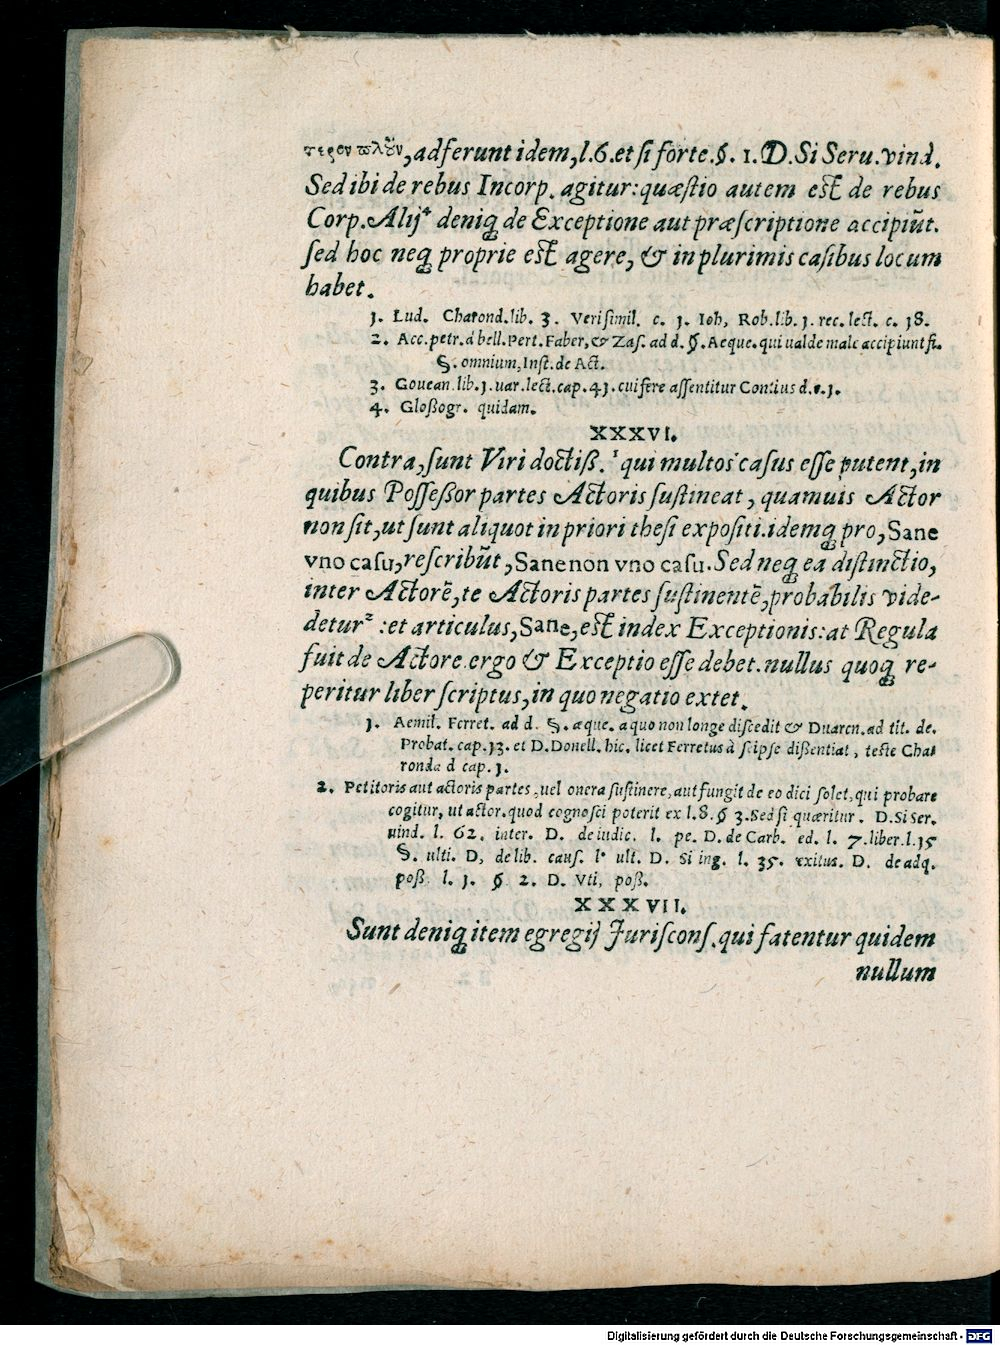 τερον πλοῦν, adferunt idem, l.6.et si forte.§. 1.D.Si Seru.vind.
Sed ibi de rebus Incorp. agitur: quæstio autem est de rebus
Corp. Alij⁴ deniq; de Exceptione aut præscriptione accipiūt.
sed hoc neq; proprie est agere, & in plurimis casibus locum
habet.
1. Lud. Charond. lib. 3. Verisimil. c. 1. Ioh, Rob. lib. 1. rec. lect. c. 18.
2. Acc. petr. à bell. Pert. Faber, & Zas. ad d. §. Aeque. qui ualde male accipiunt
§. omnium, Inst. de Act.
3. Gouean. lib. 1. uar. lect. cap. 41. cui fere assentitur Contius d. c. 1.
4. Gloßogr. quidam.
XXXVI.
Contra, sunt Viri doctiß. ¹ qui multos casus esse putent, in
quibus Posseßor partes Actoris sustineat, quamuis Actor
non sit, ut sunt aliquot in priori thesi expositi. idemq; pro, Sane
vno casu, rescribūt, Sane non vno casu. Sed neq; ea distinctio,
inter Actorē, te Actoris partes sustinentē, probabilis vide-
detur² : et articulus, Sane, est index Exceptionis: at Regula
fuit de Actore. ergo & Exceptio esse debet. nullus quoq; re-
peritur liber scriptus, in quo negatio extet.
1. Aemil. Ferret. ad d. §. æque. a quo non longe discedit & Duaren. ad tit. de.
Probat. cap. 13. et D. Donell. hic. licet Ferretus à seipse dißentiat, teste Cha
ronda d cap. 1.
2. Petitoris aut actoris partes, uel onera sustinere, aut fungit de eo dici solet, qui probare
cogitur, ut actor. quod cognosci poterit ex l. 8. § 3. Sed si quæritur. D. Si Ser.
uind. l. 62. inter. D. de iudic. l. pe. D. de Carb. ed. l. 7. liber. l. 15
§. ulti. D, de lib. caus. l. ult. D. Si ing. l. 35. exitus. D. de adq.
poß. l. 1. § 2. D. Vti, poß.
XXXVII.
Sunt deniq; item egregij Jurisconf. qui fatentur quidem
nullum
Digitalisierung gefördert durch die Deutsche Forschungsgemeinschaft - DFG